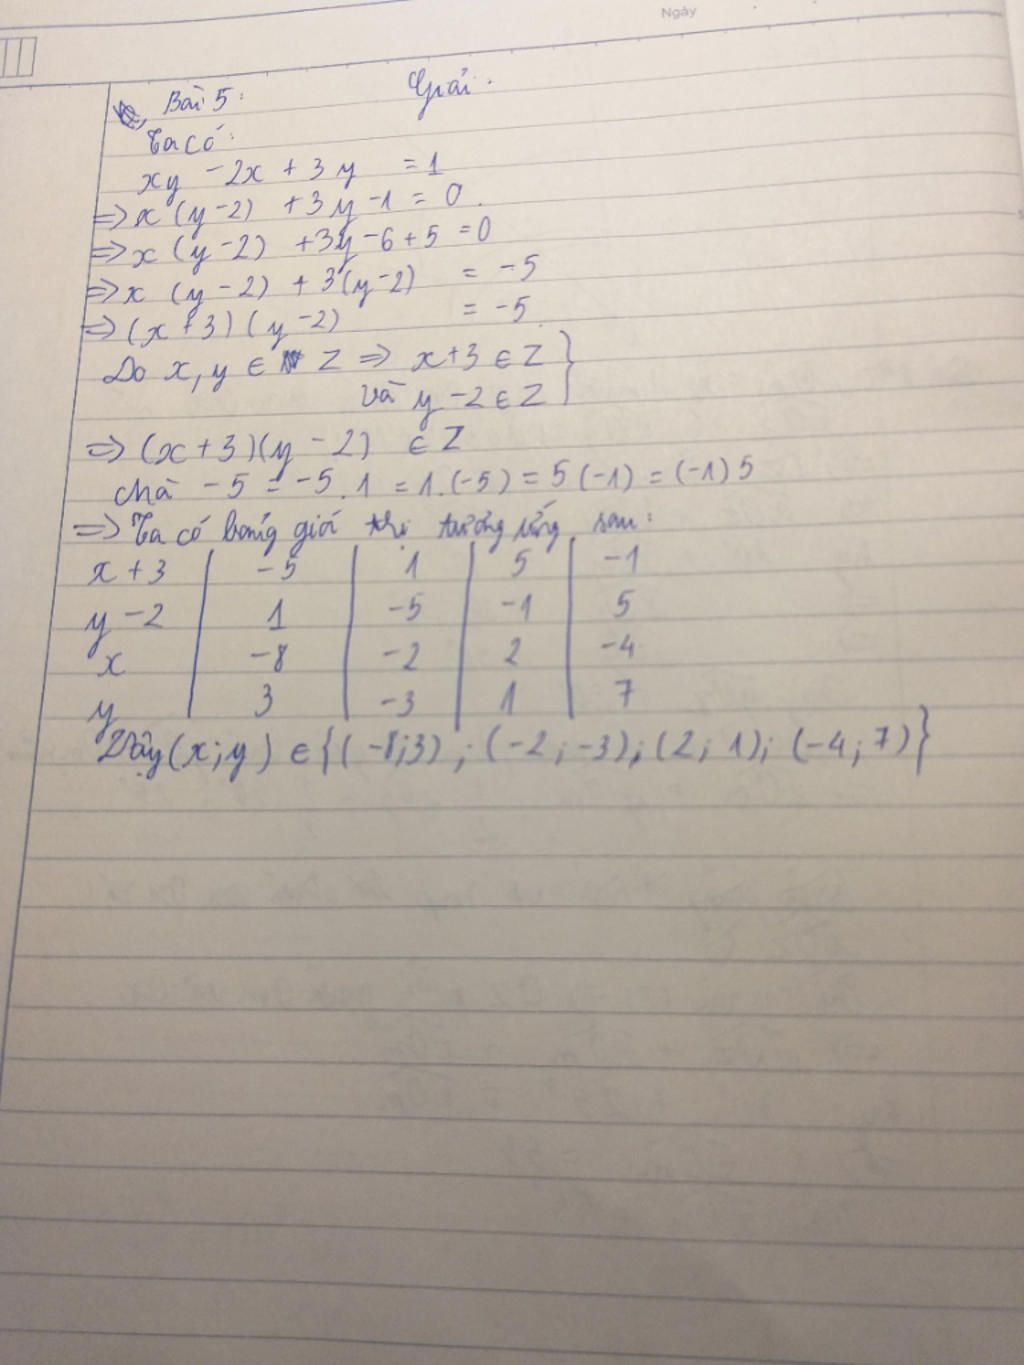 Ngày
Bài 5: Giải.
Ta có:
xy - 2x + 3y = 1
=> x (y-2) + 3y - 1 = 0.
=> x (y-2) + 3y - 6 + 5 = 0
=> x (y-2) + 3(y-2) = -5
=> (x+3) (y-2) = -5
Do x, y ∈ Z => x+3 ∈ Z }
và y - 2 ∈ Z
=> (x+3)(y-2) ∈ Z
Mà -5 = -5.1 = 1.(-5) = 5(-1) = (-1)5
=> Ta có bảng giá trị tương ứng sau:
x + 3 | -5 | 1 | 5 | -1
y - 2 | 1 | -5 | -1 | 5
x | -8 | -2 | 2 | -4
y | 3 | -3 | 1 | 7
Vậy (x;y) ∈ {(-8;3) ; (-2; -3); (2; 1); (-4; 7)}